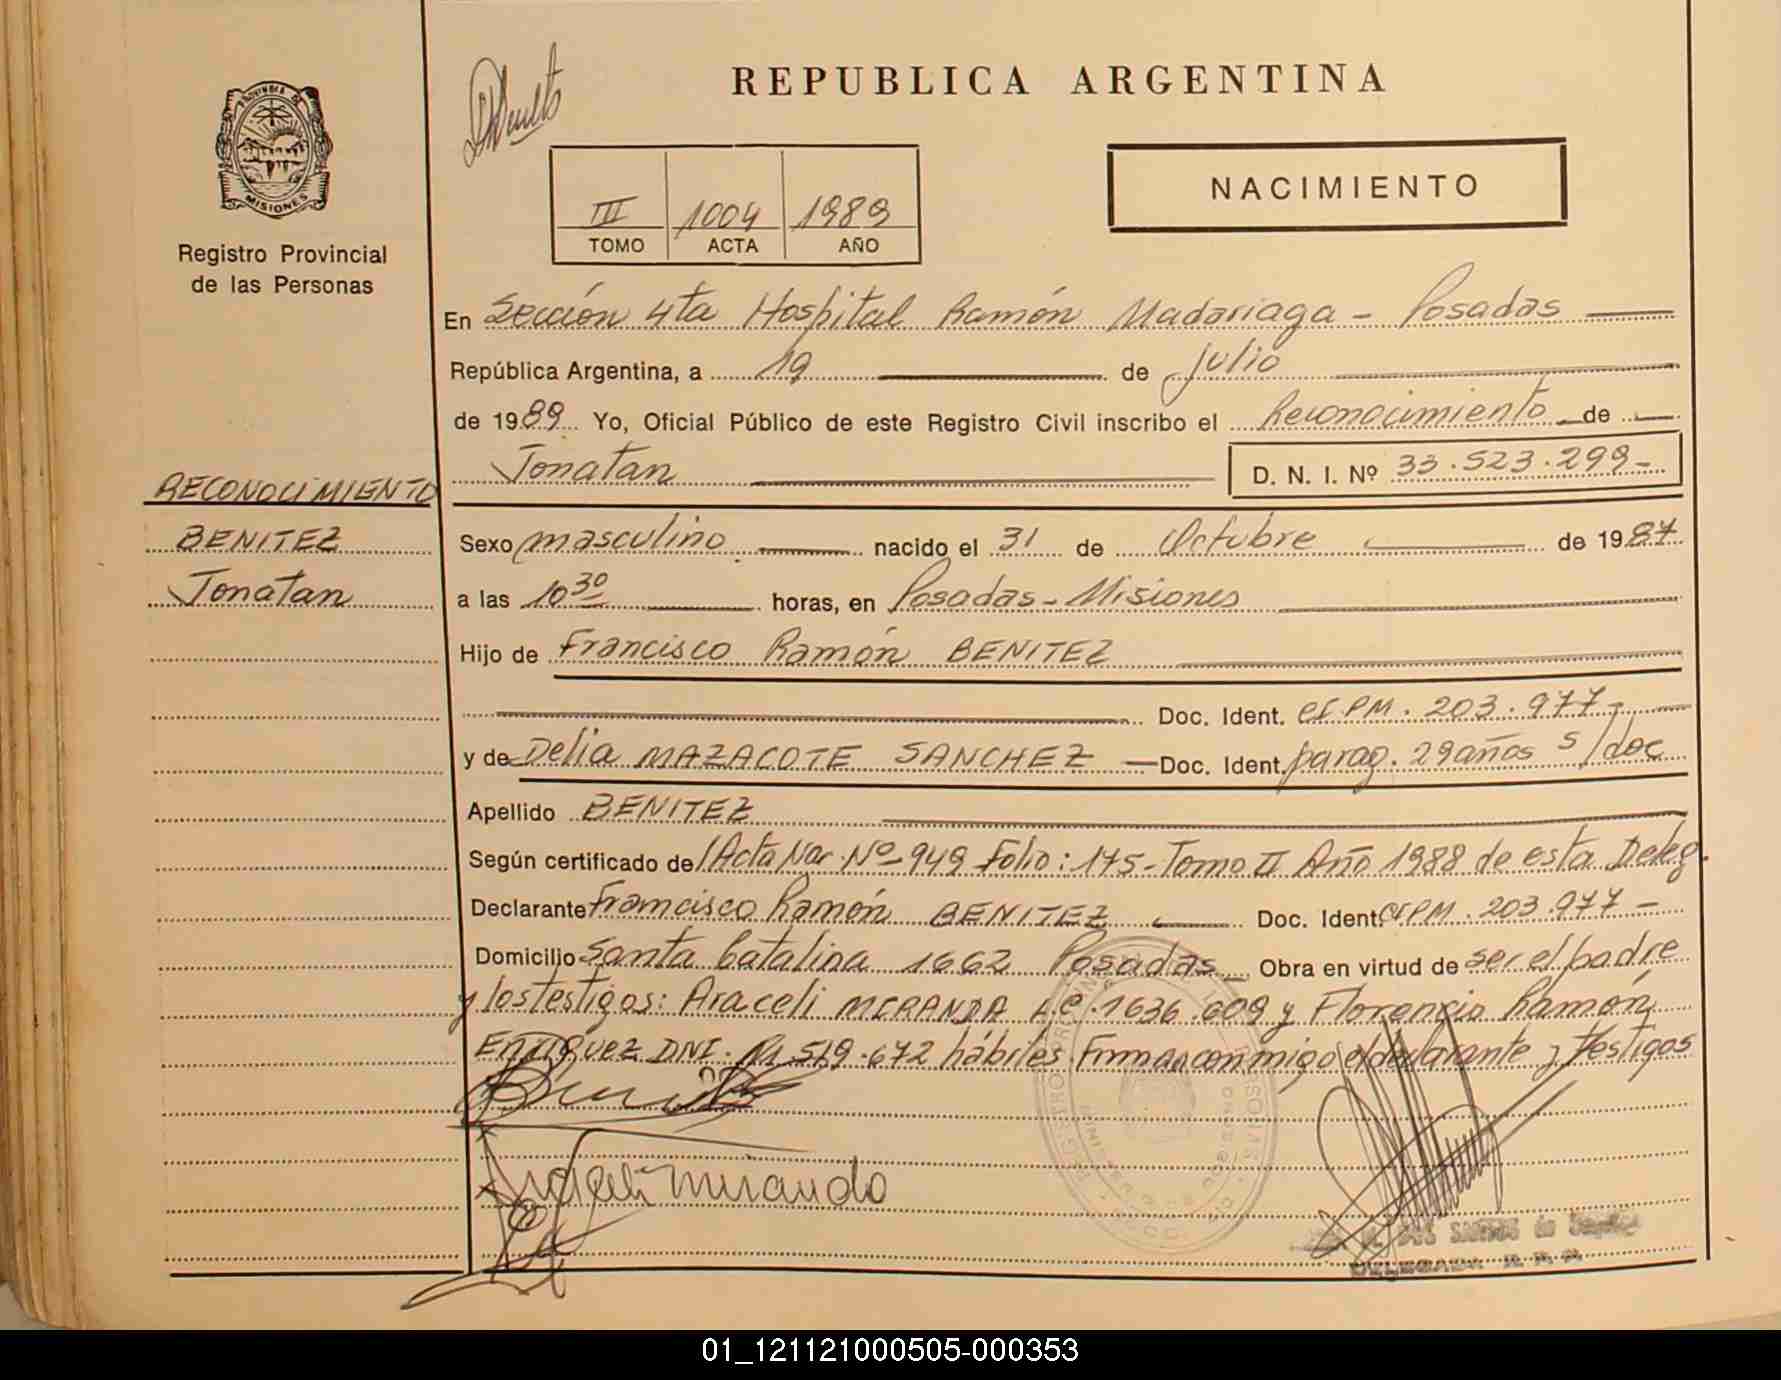 REPUBLICA ARGENTINA
PROVINCIA DE
MISIONES
Registro Provincial
de las Personas
III 1004 1989
TOMO ACTA AÑO
NACIMIENTO
En Sección 4ta Hospital Ramón Madariaga - Posadas
República Argentina, a 19 de Julio
de 1989 Yo, Oficial Público de este Registro Civil inscribo el Reconocimiento de
Jonatan D. N. I. Nº 33.523.299-
RECONOCIMIENTO
BENITEZ
Jonatan
Sexo masculino nacido el 31 de Octubre de 1987
a las 10 30 horas, en Posadas - Misiones
Hijo de Francisco Ramón BENITEZ
Doc. Ident. CIPM. 203.977-
y de Delia MAZACOTE SANCHEZ Doc. Ident. parag. 29 años s/doc
Apellido BENITEZ
Según certificado de /Acta Nac. Nº 949 Folio: 175 - Tomo II Año 1988 de esta Deleg.
Declarante Francisco Ramón BENITEZ Doc. Ident. CIPM. 203.977 -
Domicilio Santa Catalina 1662 Posadas Obra en virtud de ser el padre
y los testigos: Araceli MIRANDA L.C. 1636.609 y Florencio Ramón
Enriquez DNI. 519.672 hábiles. Firman conmigo el declarante y testigos
Araceli Miranda
DOS SANTOS de
DELEGADA R. P. P.
01_121121000505-000353